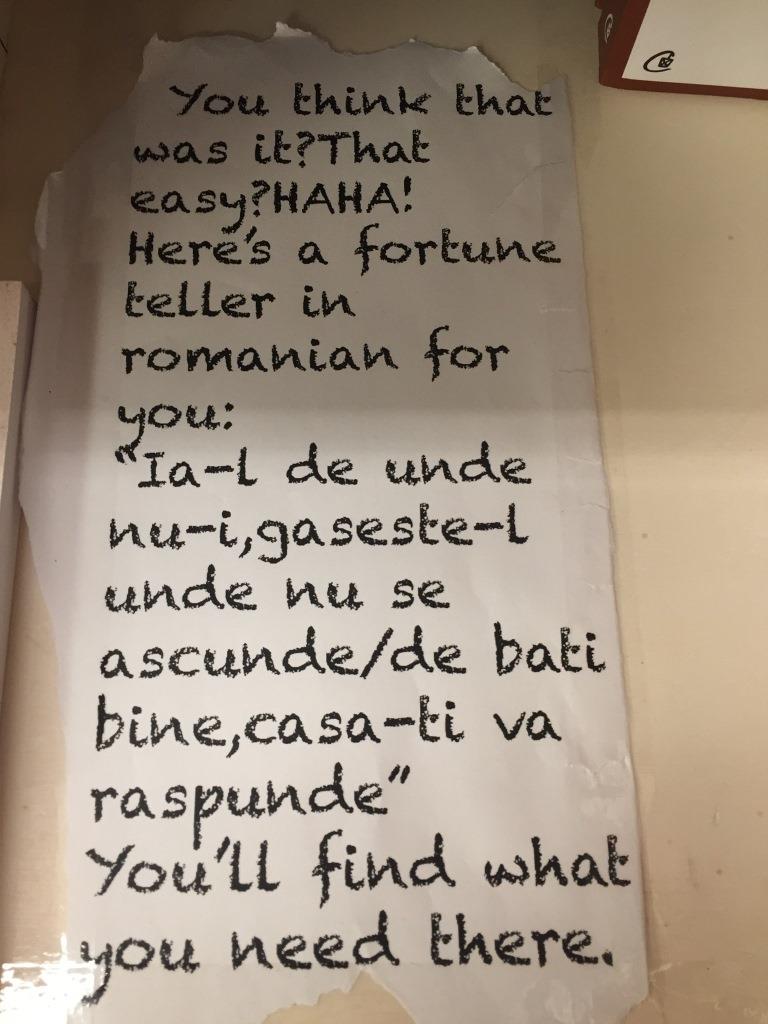 You think that
was it?That
easy?HAHA!
Here's a fortune
teller in
romanian for
you:
"Ia-l de unde
nu-i,gaseste-l
unde nu se
ascunde/de bati
bine,casa-ti va
raspunde"
You'll find what
you need there.